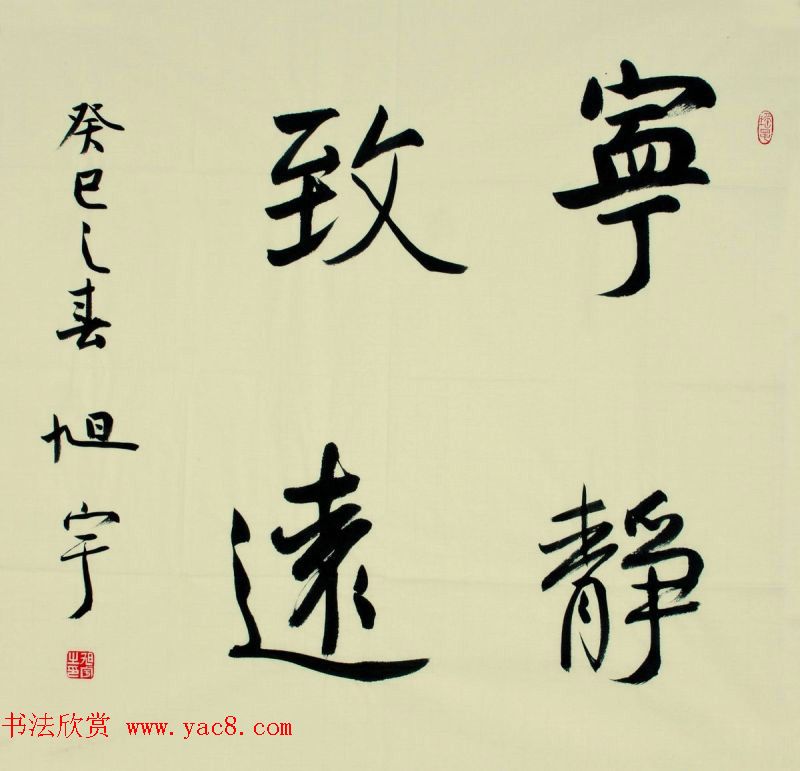 寧靜
致遠
癸巳之春 旭宇
旭宇之印
书法欣赏 www.yac8.com